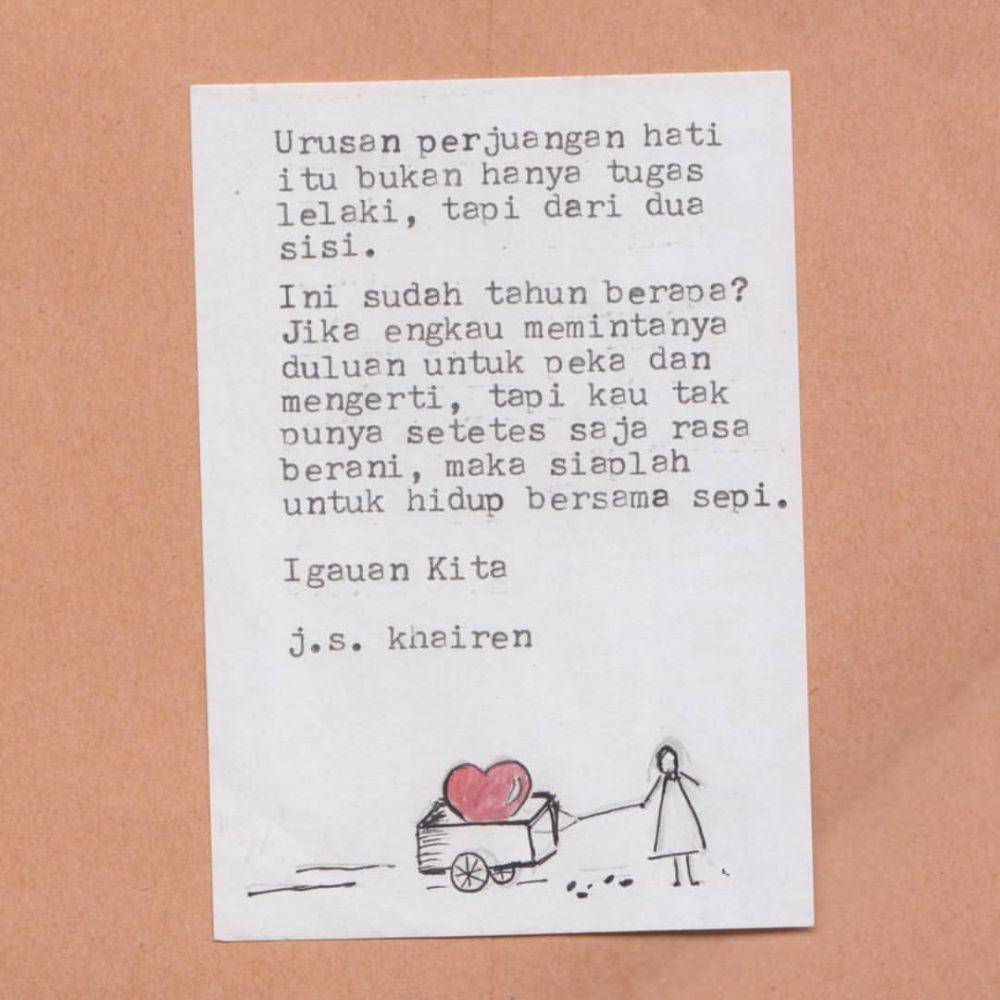 Urusan perjuangan hati
itu bukan hanya tugas
lelaki, tapi dari dua
sisi.
Ini sudah tahun berapa?
Jika engkau memintanya
duluan untuk peka dan
mengerti, tapi kau tak
punya setetes saja rasa
berani, maka siaplah
untuk hidup bersama sepi.
Igauan Kita
j.s. khairen